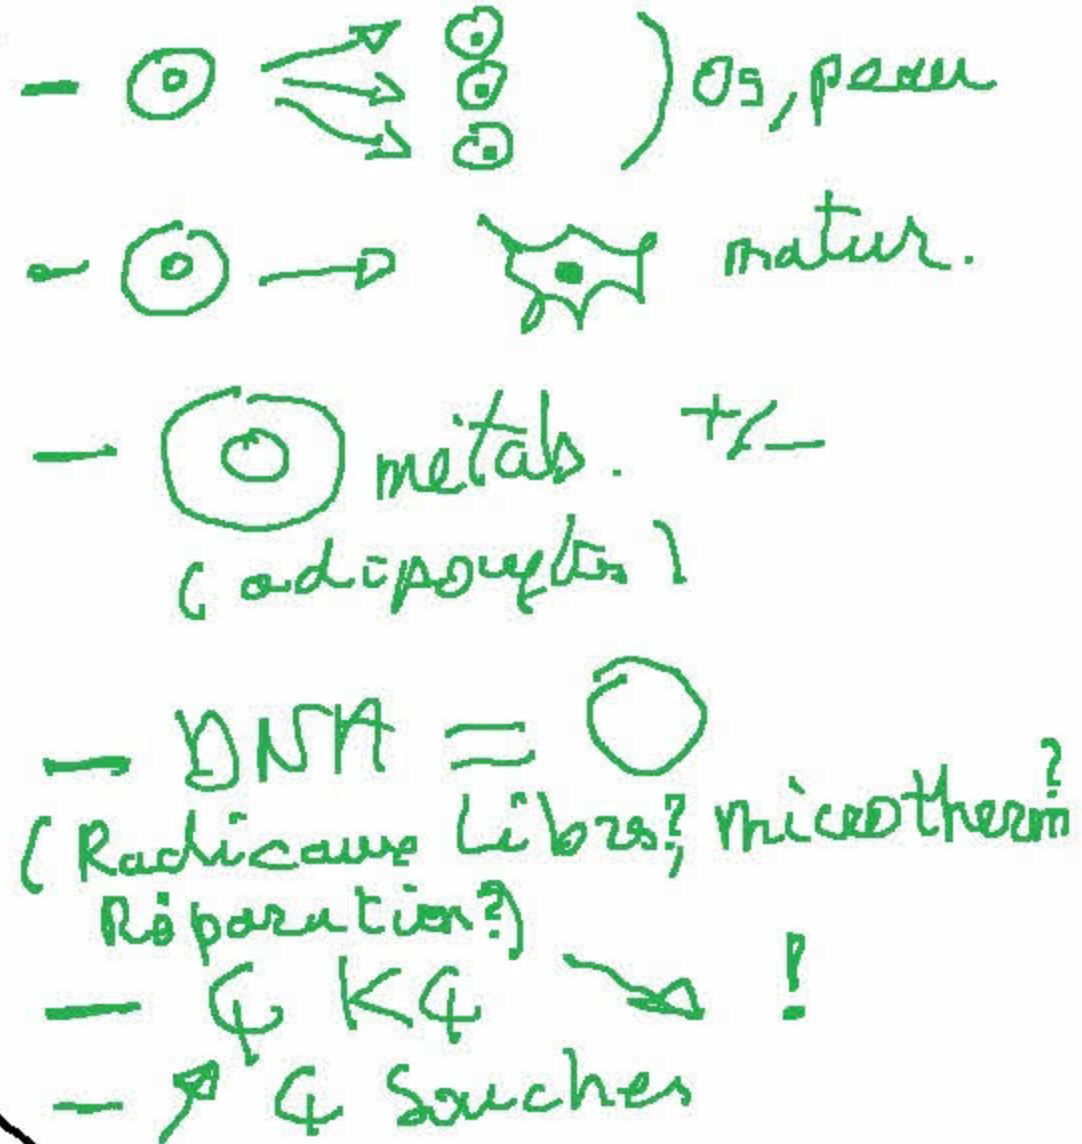 - Os, peau
- matur.
- metab. +/-
(adipocytes)
- DNA =
(Radicaux Libres?, microtherm?
Réparation?)
- ₵ K₵ !
- ₵ Souches